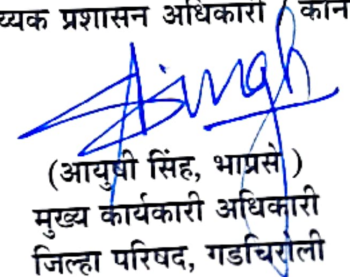 य्यक प्रशासन अधिकारी / कान
Singh
(आयुषी सिंह, भाप्रसे)
मुख्य कार्यकारी अधिकारी
जिल्हा परिषद, गडचिरोली